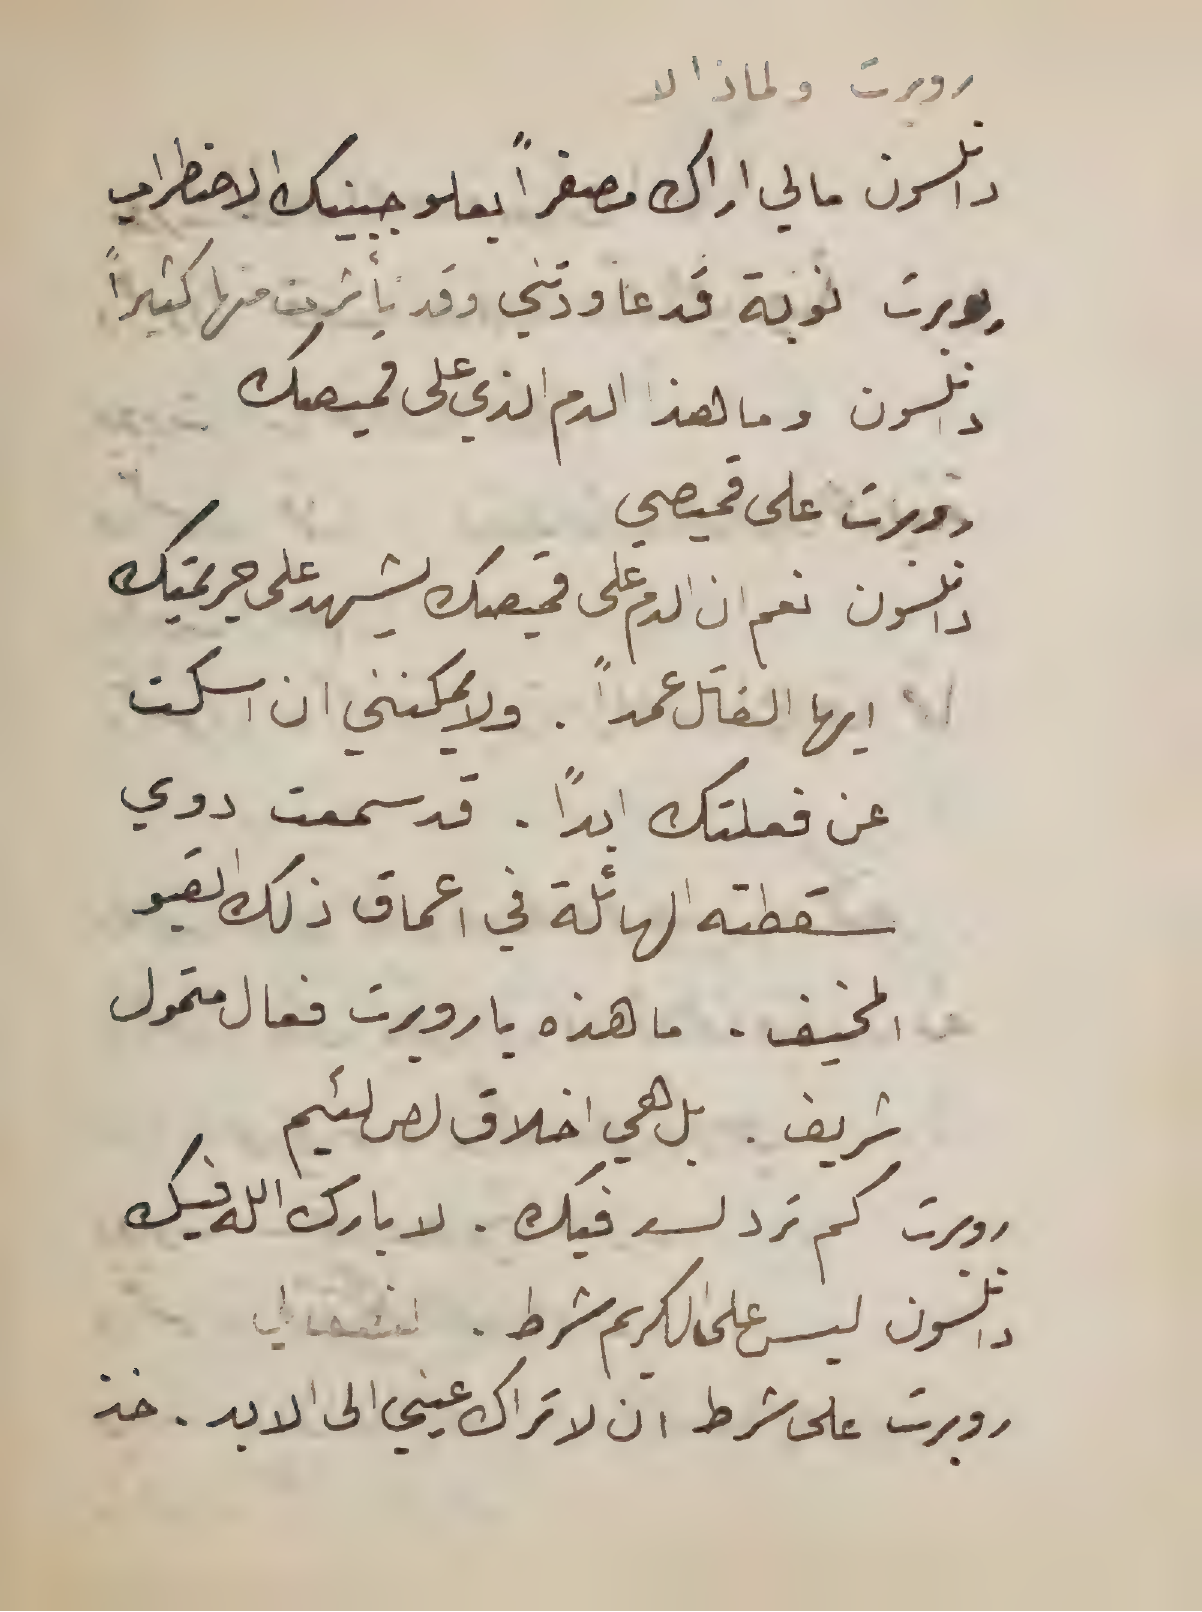 روبرت ولماذا لا
دانلسون مالي اراك مصفراً يعلو جبينك الاضطراب
روبرت نوبة قد عاودتني وقد تأثرت منها كثيراً
دانلسون وما هذا الدم الذي على قميصك
روبرت على قميصي
دانلسون نعم ان الدم على قميصك ليشهد على جريمتك
ايها القاتل عمداً . ولا يمكنني ان اسكت
عن فعلتك ابداً . قد سمعت دوي
سقطته الهائلة في اعماق ذلك القبو
المخيف . ما هذه يا روبرت فعال متمول
شريف . بل هي اخلاق لص لئيم
روبرت كم تريد فيك . لا بارك الله فيك
دانلسون ليس على الكريم شرط .
روبرت على شرط ان لا تراك عيني الى الابد . خذ